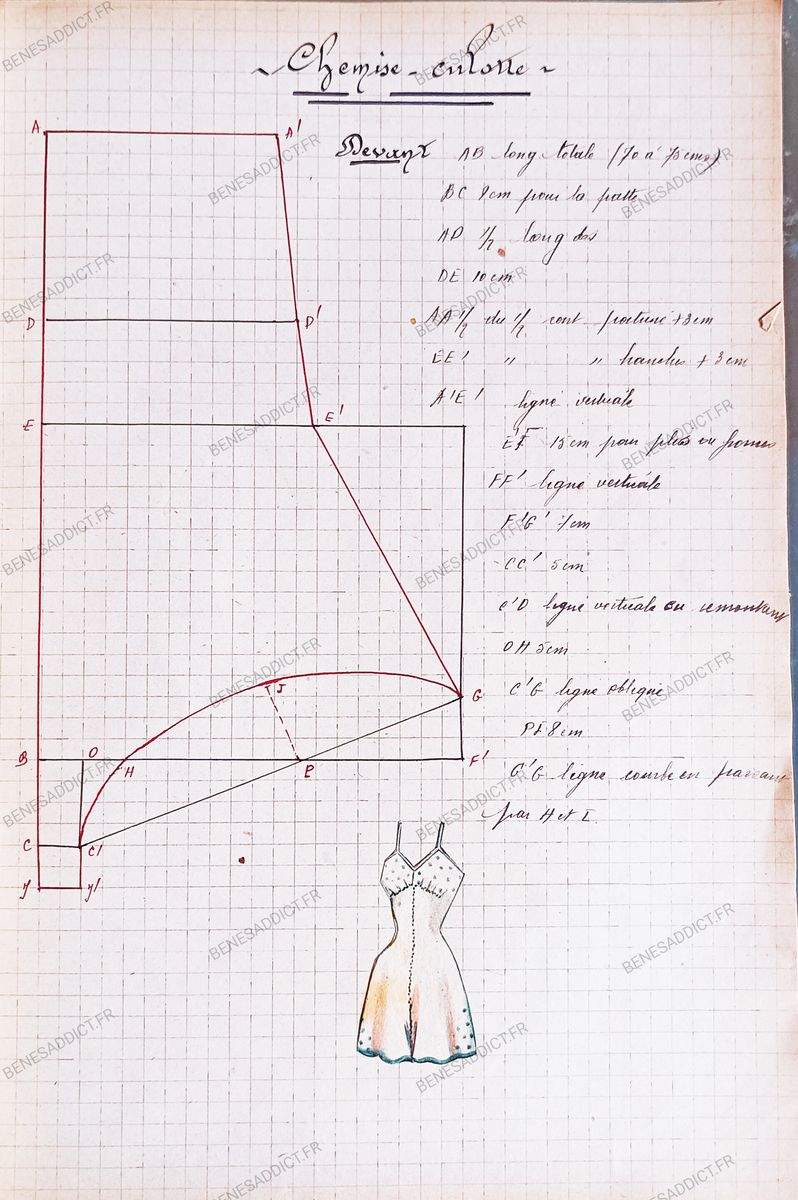 Chemise-culotte
A A' Devant AB long. totale (70 à 75cms)
BC 8cm pour la patte
AD 1/2 long dos
DE 10cm
D D' AA' 1/2 du 1/2 cont poitrine +3cm
EE' " " hanches + 3cm
A'E' ligne verticale
E E' E'F 15cm pour plis ou formes
FF' ligne verticale
F'G' 7cm
CC' 5cm
C'O ligne verticale en remontant
OH 5cm
J G C'G ligne oblique
PI 8cm
B O H P F' C'G ligne courbe en passant
par H et I
C C'
J J'
BENESADDICT.FR